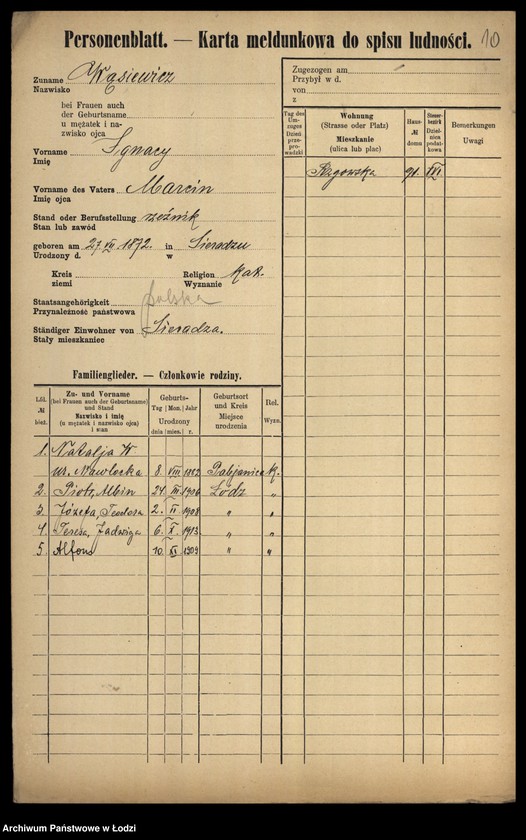 Personenblatt. — Karta meldunkowa do spisu ludności. 10
Zuname Wąsiewicz
Nazwisko
bei Frauen auch
der Geburtsname
u mężatek i na-
zwisko ojca
Vorname Ignacy
Imię
Vorname des Vaters Marcin
Imię ojca
Stand oder Berufsstellung rzeźnik
Stan lub zawód
geboren am 27 VII. 1872. in Sieradzu
Urodzony d. w
Kreis Religion kat.
ziemi Wyznanie
Staatsangehörigkeit polska
Przynależność państwowa
Ständiger Einwohner von Sieradza.
Stały mieszkaniec
Zugezogen am
Przybył w d.
von
z
Tag des
Um-
zuges
Dzień
prze-
prowadzki
Wohnung
(Strasse oder Platz)
Mieszkanie
(ulica lub plac)
Haus-
№
domu
Steuer-
bezirk
Dziel-
nica
podat-
kowa
Bemerkungen
Uwagi
Rzgowska 91. XVI
Familienglieder. — Członkowie rodziny.
Lfd.
№
bież.
Zu- und Vorname
(bei Frauen auch der Geburtsname)
und Stand
Nazwisko i imię
(u mężatek i nazwisko ojca)
i stan
Geburts-
Tag Mon. Jahr
Urodzony
dnia mies. r.
Geburtsort
und Kreis
Miejsce
urodzenia
Rel.
Wyzn.
1. Natalja W
ur. Nawlocka 8. VIII 1882 Pabjanice k.
2. Piotr, Albin 24 III 1906 Łódź "
3 Józefa, Teodora 2. II 1908 " "
4 Teresa, Jadwiga 6. X. 1913 " "
5. Alfons 10 XI 1909 " "
Archiwum Państwowe w Łodzi